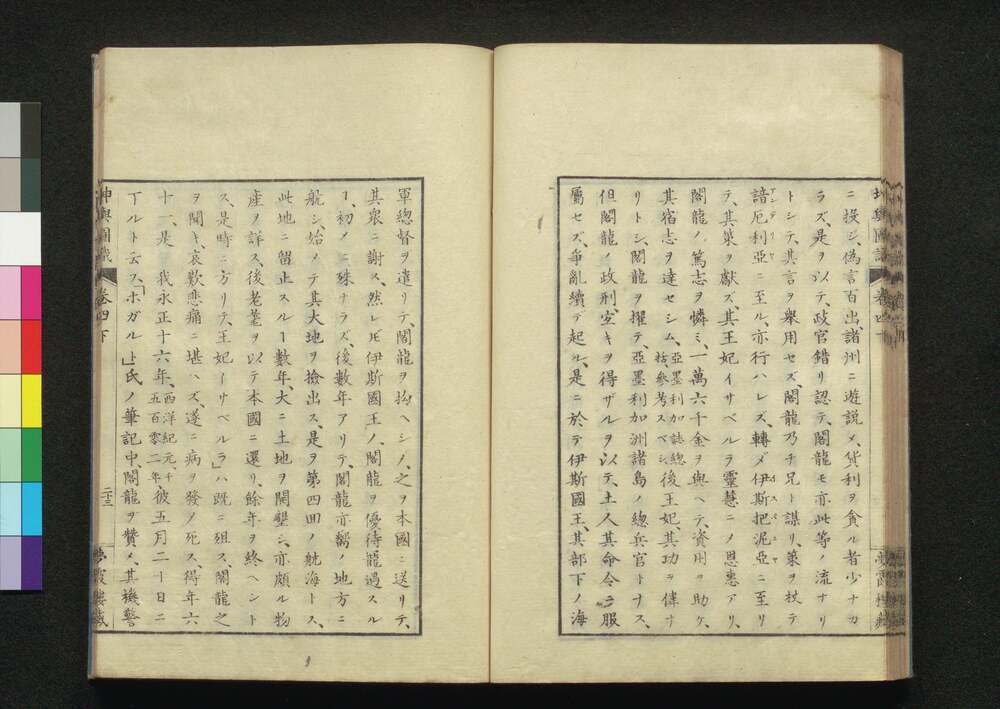 ニ投ジ、偽言百出、諸洲ニ遊説メ、貨利ヲ貪ル者少ナカ
ラズ、是ヲ以テ、政官錯リ認テ、閣龍モ亦此等ノ流ナリ
トシテ、其言ヲ舉用セズ、閣龍乃チ兄ト謀リ、策ヲ杖テ
諳厄利亞ニ至ル、亦行ハレズ、轉メ伊斯把泥亞ニ至リ
テ、其策ヲ獻ズ、其王妃イサベルラ靈慧ニノ恩惠アリ、
閣龍ノ篤志ヲ憐ミ、一萬六千金ヲ與ヘテ、資用ヲ助ケ、
其宿志ヲ達セシム、亞墨利加誌總括、參考スベシ後王妃、其功ヲ偉ナ
リトシ、閣龍ヲ擢テ、亞墨利加洲諸島ノ總兵官トナス、
但閣龍ノ政刑、宜キヲ得ザルヲ以テ、土人其命令ニ服
屬セズ、爭亂續デ起ル、是ニ於テ伊斯國王、其部下ノ海
坤輿圖識 卷四下
軍總督ヲ遣リテ、閣龍ヲ拘ヘシメ、之ヲ本國ニ送リテ、
其衆ニ謝ス、然レ𪜈伊斯國王ノ、閣龍ヲ優待寵遇スル
ヿ、初メニ殊ナラズ、後數年アリテ、閣龍亦鬱ノ地方ニ
航シ、始メテ其大地ヲ撿出ス、是ヲ第四囬ノ航海トス、
此地ニ留止スルヿ數年、大ニ土地ヲ開墾シ、亦頗ル物
産ヲ詳ス、後老耄ヲ以テ本國ニ還リ、餘年ヲ終ヘント
ス、是時ニ方リテ、王妃イサベルラ」ハ既ニ殂ス、閣龍之
ヲ聞キ、哀歎悲痛ニ堪ヘズ、遂ニ病ヲ發ノ死ス、得年六
十一、是、我永正十六年、西洋紀元、千五百零二年彼五月二十日ニ
下ルト云ス、「ホガル」ト氏ノ筆記中、閣龍ヲ贊メ、其機警
坤輿圖識 卷四下 二十三 夢霞樓藏